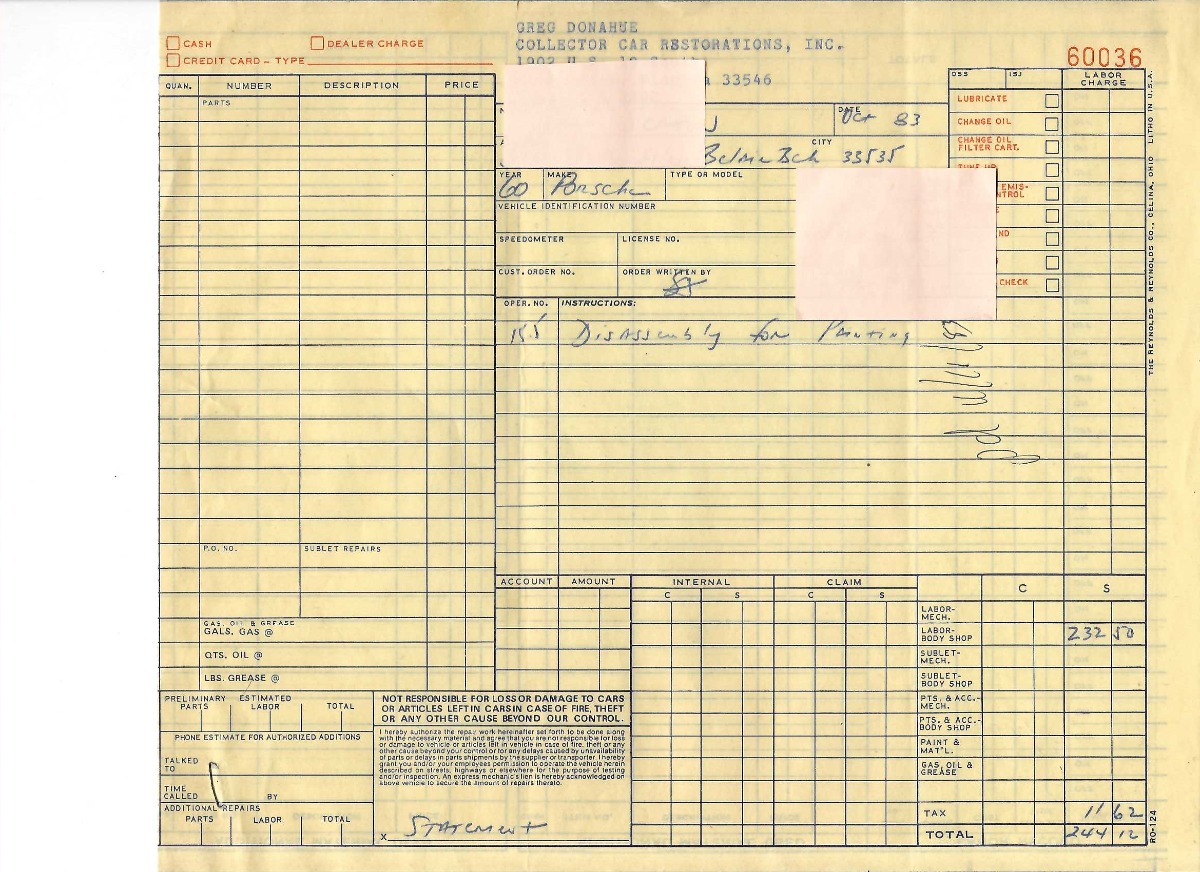 GREG DONAHUE
COLLECTOR CAR RESTORATIONS, INC.
33546
CASH
DEALER CHARGE
CREDIT CARD - TYPE
60036
QUAN. NUMBER DESCRIPTION PRICE
PARTS
DATE
Oct 83
CITY
33535
YEAR MAKE TYPE OR MODEL
60 Porsche
VEHICLE IDENTIFICATION NUMBER
SPEEDOMETER LICENSE NO.
CUST. ORDER NO. ORDER WRITTEN BY
OPER. NO. INSTRUCTIONS:
15.5 Disassembly for Painting
Pd
LABOR CHARGE
LUBRICATE
CHANGE OIL
CHANGE OIL
FILTER CART.
TUNE UP
EMIS-
NTROL
ND
CHECK
THE REYNOLDS & REYNOLDS CO., CELINA, OHIO LITHO IN U.S.A.
P.O. NO. SUBLET REPAIRS
GAS, OIL & GREASE
GALS. GAS @
QTS. OIL @
LBS. GREASE @
ACCOUNT AMOUNT INTERNAL CLAIM
C S C S C S
LABOR-
MECH.
LABOR-
BODY SHOP 232 50
SUBLET-
MECH.
SUBLET-
BODY SHOP
PTS. & ACC.-
MECH.
PTS. & ACC.-
BODY SHOP
PAINT &
MAT'L.
GAS, OIL &
GREASE
TAX 11 62
TOTAL 244 12
RO-124
PRELIMINARY ESTIMATED
PARTS LABOR TOTAL
PHONE ESTIMATE FOR AUTHORIZED ADDITIONS
TALKED
TO
TIME
CALLED BY
ADDITIONAL REPAIRS
PARTS LABOR TOTAL
NOT RESPONSIBLE FOR LOSS OR DAMAGE TO CARS
OR ARTICLES LEFT IN CARS IN CASE OF FIRE, THEFT
OR ANY OTHER CAUSE BEYOND OUR CONTROL.
I hereby authorize the repair work hereinafter set forth to be done along
with the necessary material and agree that you are not responsible for loss
or damage to vehicle or articles left in vehicle in case of fire, theft or any
other cause beyond your control or for any delays caused by unavailability
of parts or delays in parts shipments by the supplier or transporter. I hereby
grant you and/or your employees permission to operate the vehicle herein
described on streets, highways or elsewhere for the purpose of testing
and/or inspection. An express mechanic's lien is hereby acknowledged on
above vehicle to secure the amount of repairs thereto.
X Statement